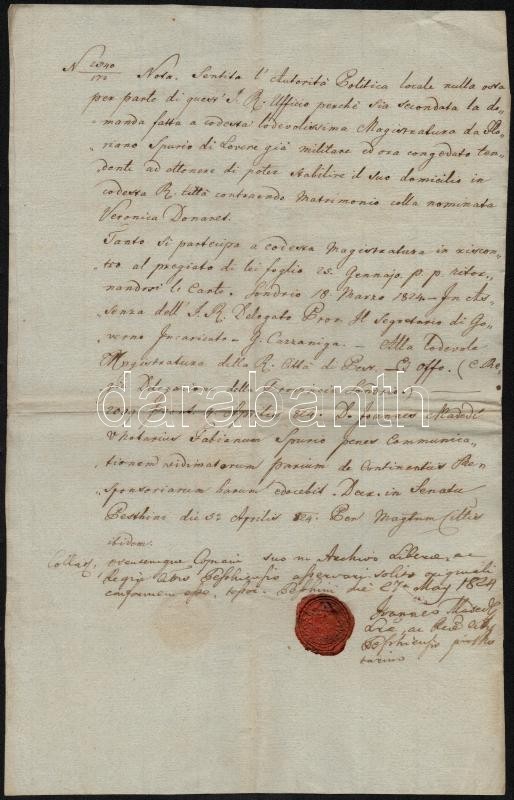 N 2840/172 Nota. Sentita l'Autorità Politica locale nulla osta
per parte di quest' I. R. Ufficio perchè sia secondata la do-
manda fatta a codesta lodevolissima Magistratura da Flo-
riano Spurio di Lovere già militare ed ora congedato ten-
dente ad ottenere di poter stabilire il suo domicilio in
codesta R. Città contraendo Matrimonio colla nominata
Veronica Donaret.
Tanto si partecipa a codesta Magistratura in riscon-
tro al pregiato di lei foglio 25. Gennajo p. p. ritor-
nandosi le Carte. Sondrio 18. Marzo 1824 - In As-
senza dell' I. R. Delegato Prov. Il Segretario di Go-
verno Incaricato - G. Carzaniga. - Alla Lodevole
Magistratura della R. Città di Pest. Ex offo. (C. Re-
gia Delegazione della Provincia Sondrio)
Joannes
Vnotarius Fabianum Spurio penes Communica-
tionem vidimatarum parium de Continentiis
sponsoriarum harum edocebit. Dec. in Senatu
Pesthini die 5a Aprilis 824. Per Magtum Cittis
ibidem.
Collat. Copiam suo in Archivo Liberae, ac
Regiae Cittis Pesthiensis asservari solito originali
conformem esse, testor. Pesthini die 27a May 1824
Joannes
Lrae, ac Reae Cittis
Pesthiensis
tarius
darabanth